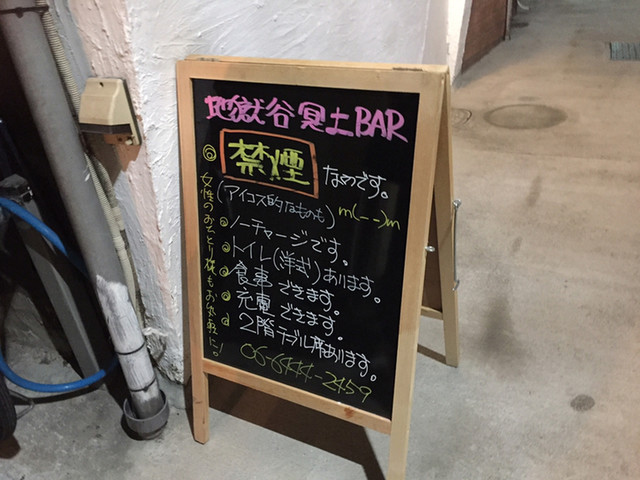 地獄谷冥土BAR
◎ 禁煙 なのです。
(アイコス的なものも) m(--)m
◎ノーチャージです。
◎トイレ(洋式)あります。
◎食事できます。
◎充電できます。
◎2階テーブル席あります。
06-6444-2459
女性のおひとり様もお気軽に!。